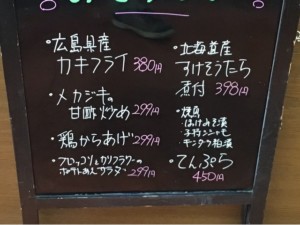 ・広島県産
カキフライ 380円
・メカジキの
甘酢炒め 299円
・鶏からあげ 299円
・ブロッコリー&カリフラワーの
サラダ 299円
・北海道産
すけそうたら
煮付 398円
・焼魚
・子持シシャモ
・キンダラ粕漬
・てんぷら
450円